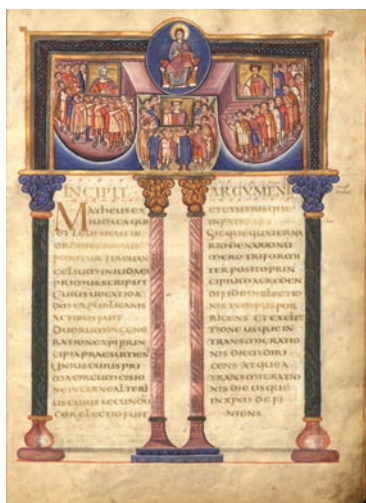 INCIPIT
Matheus ex
iudaea qui
et leui sicut in
ordine primus
ponitur ita euan
gelium in iudaea
primus scripsit
Cuius uocatio a
dm ex publicanis
actibus fuit
Duorum in gene
ratione xpi prin
cipia praesumens
Unius cuius pri
ma circumcisio
in carne alteri
us cuius secundu
cor electio fuit
ARGVMEN
et ex utrisque
in patribus
Sicque quaterna
rio denario nu
mero triformi
ter posito prin
cipium a creden
di fide in electio
nis tempus por
rigens et ex elec
tione usque in
transmigratio
nis diem diri
gens atque a
transmigratio
nis die usque
in xpm defi
niens